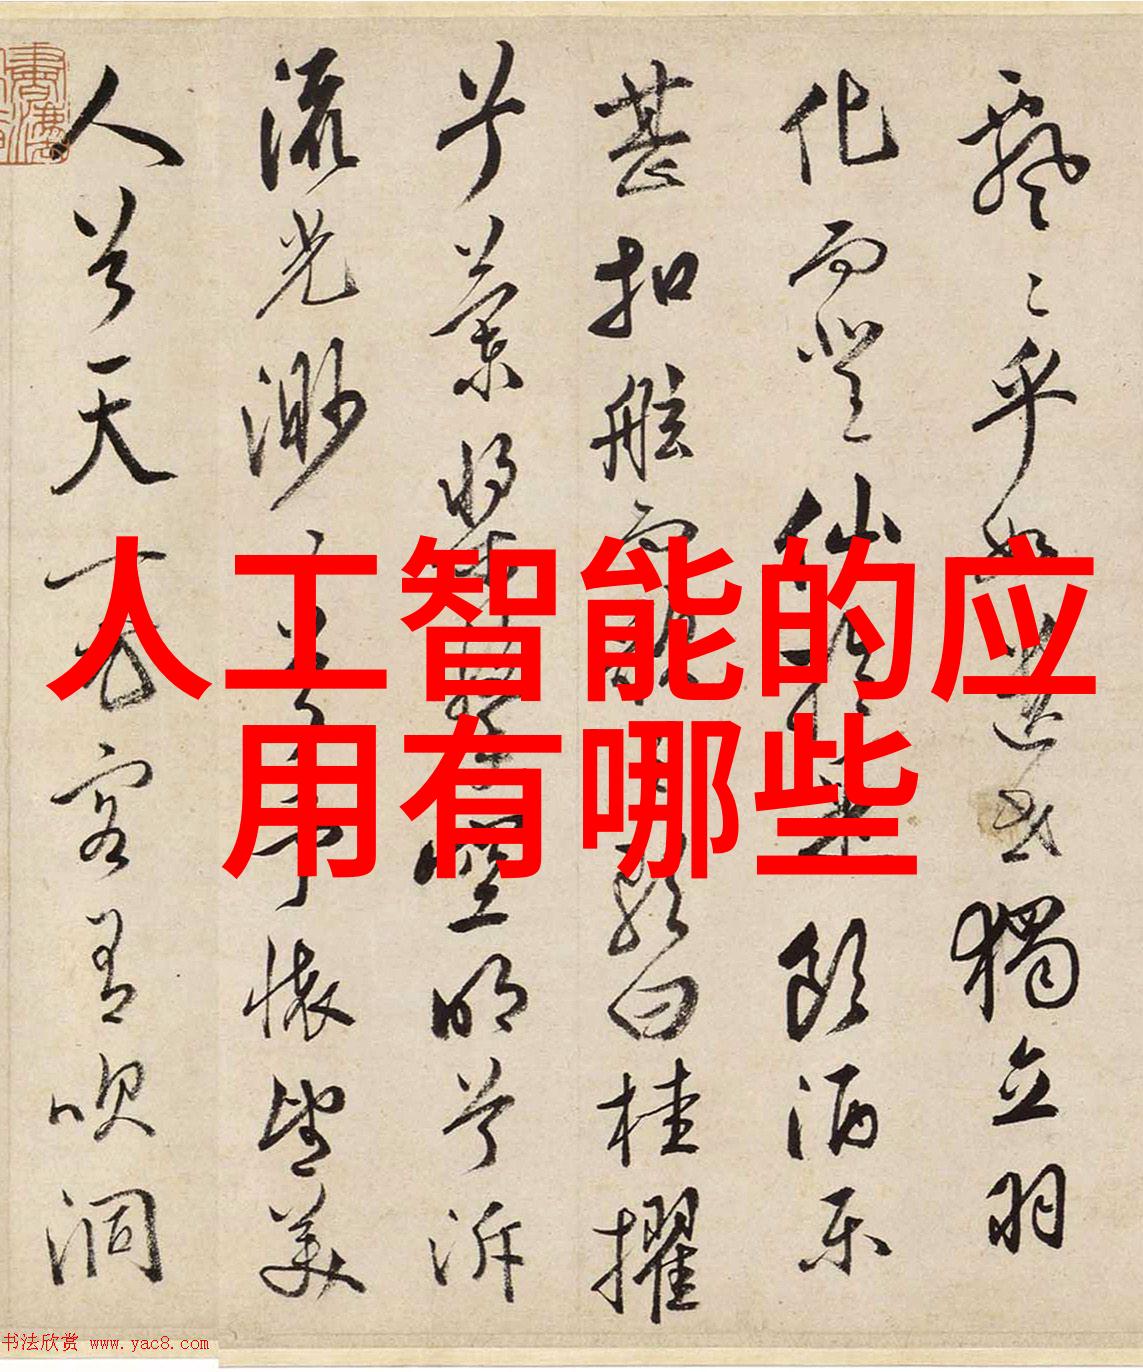 飘〻乎如遗世獨立羽
化而登仙於是飲酒乐
甚扣舷而歌之歌曰桂擢
兮蘭槳擊空明兮泝
流光渺〻兮予懷望美
人兮天一方客有吹洞
人工智能的应
用有哪些
书法欣赏 www.yac8.com